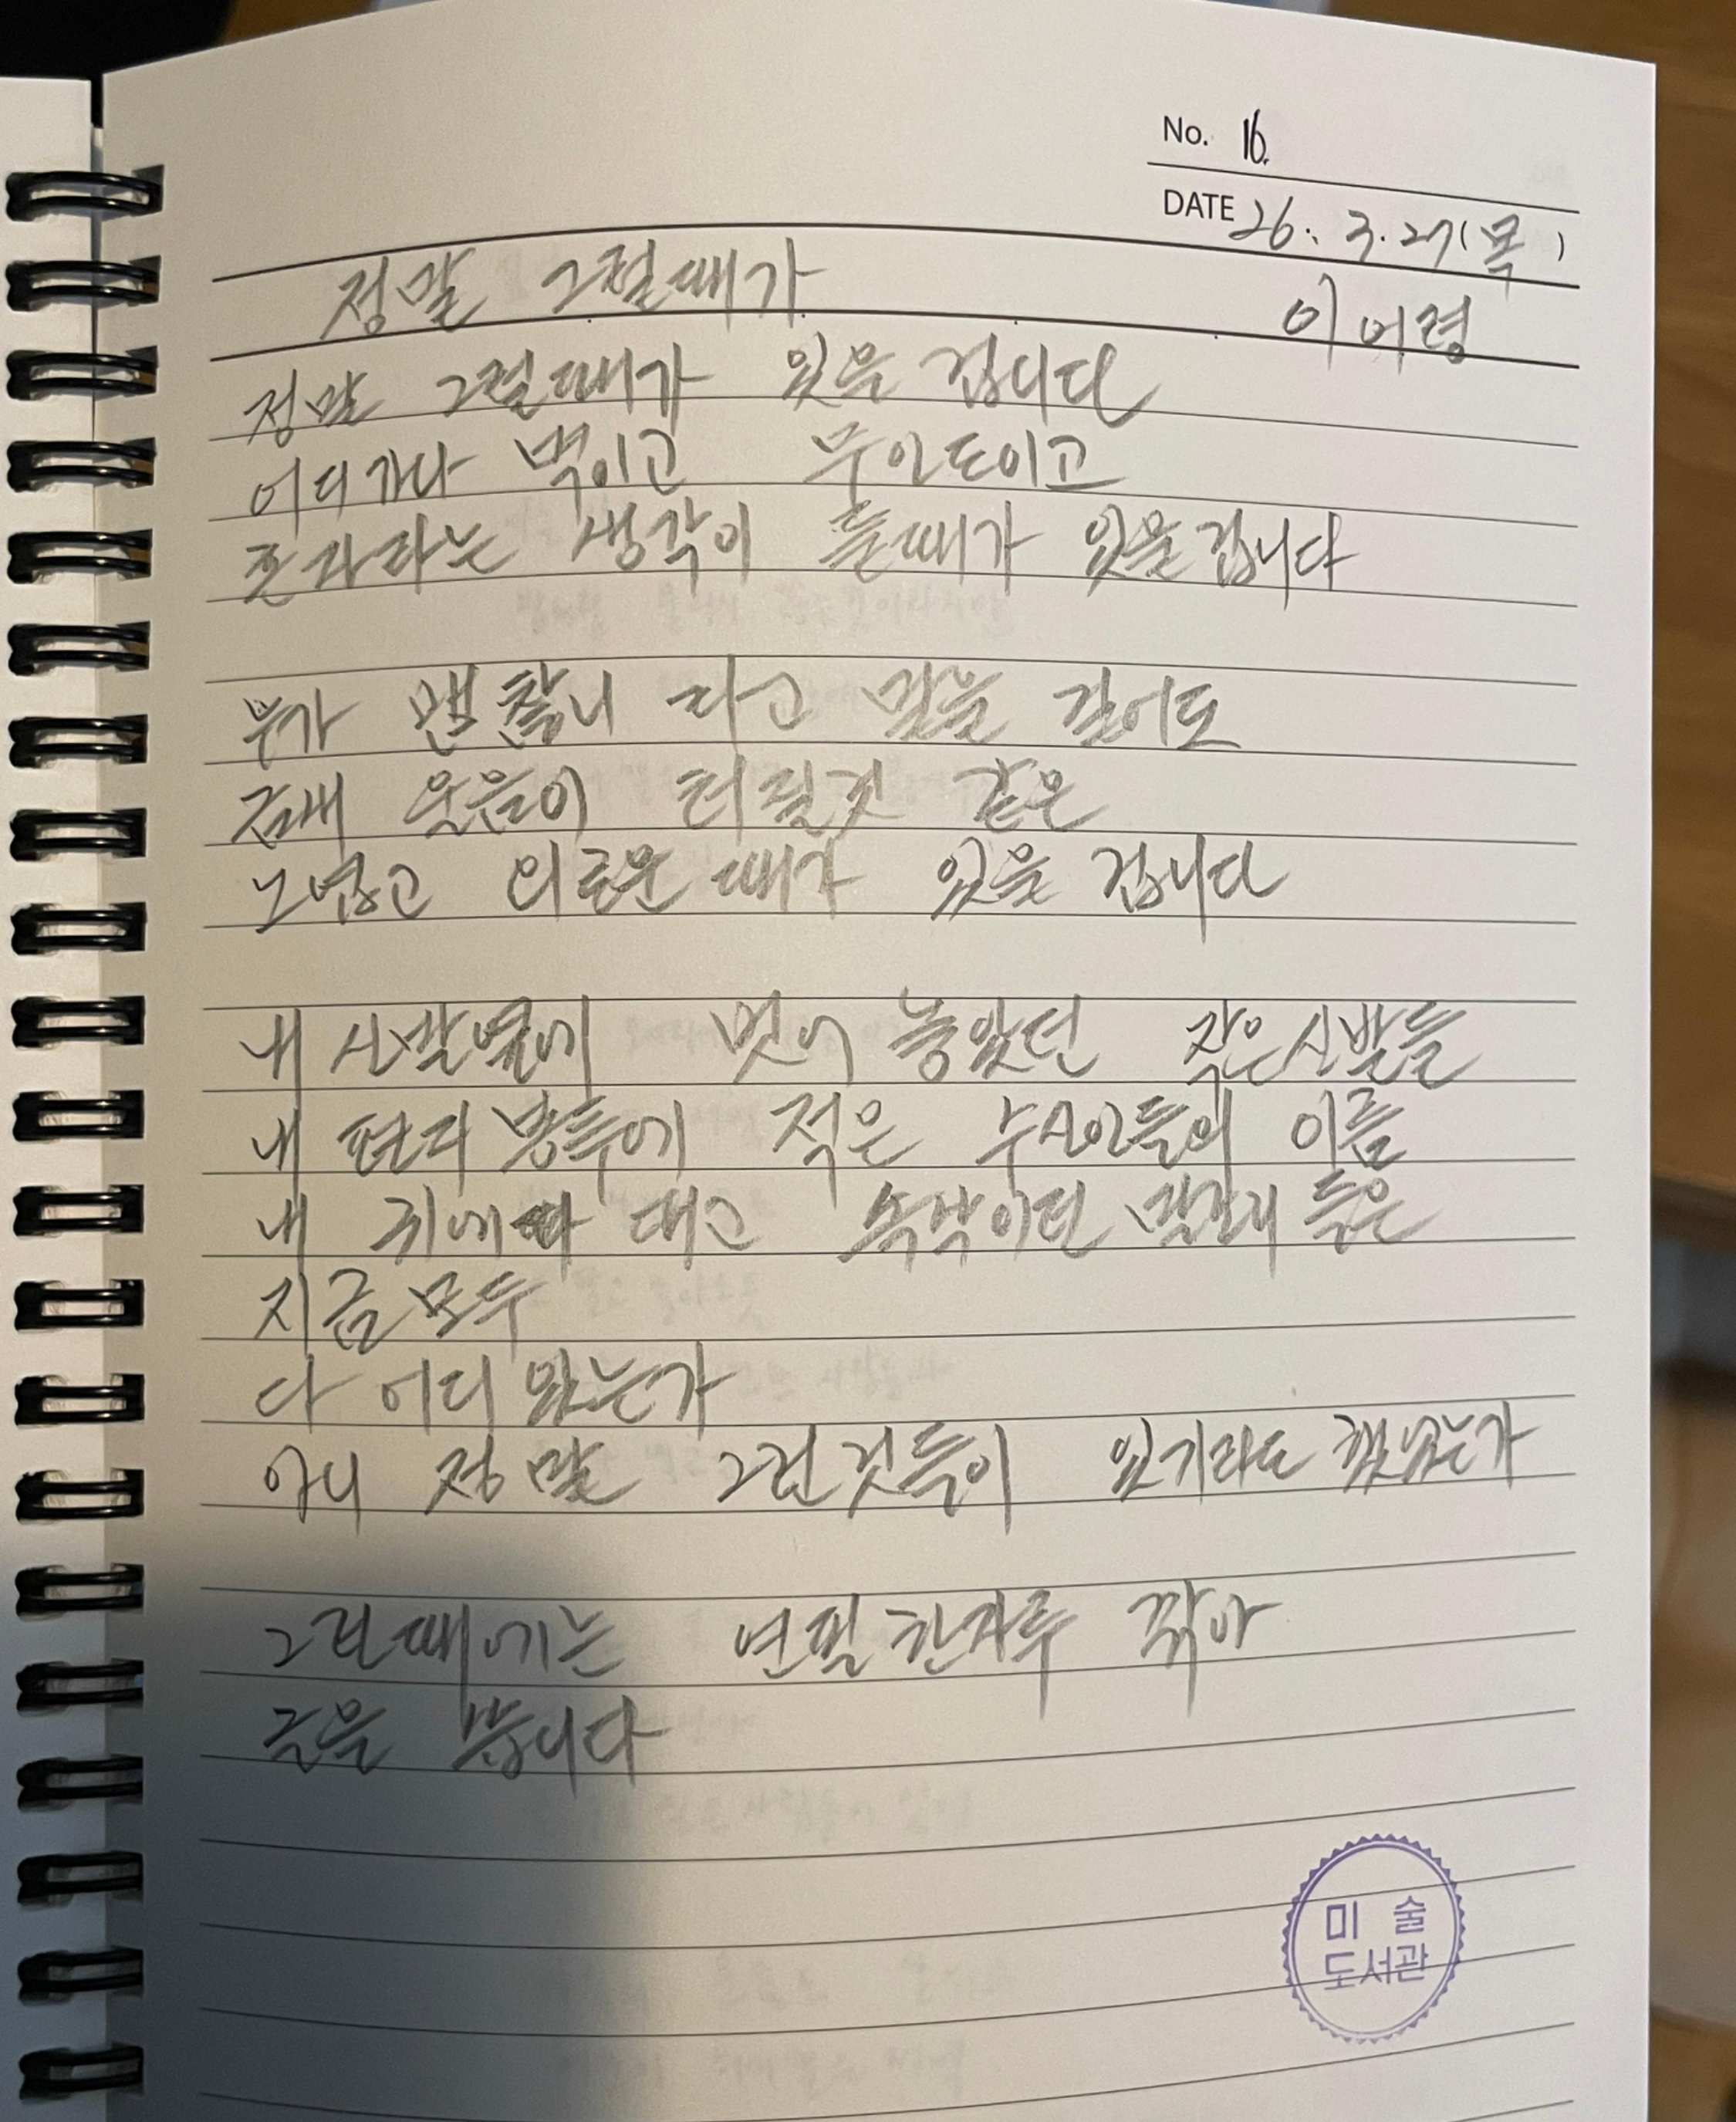 No. 16.
DATE 26. 3. 27 (목)
정말 그럴때가
이어령
정말 그럴때가 있을 겁니다
어디가나 벽이고 무인도이고
혼자라는 생각이 들때가 있을겁니다
누가 괜찮니 라고 말을 걸어도
금새 울음이 터질것 같은
노엽고 외로운 때가 있을 겁니다
내 신발옆에 벗어 놓았던 작은신발들
내 편지 봉투에 적은 수신인들의 이름
내 귀에다 대고 속삭이던 말소리 들은
지금 모두
다 어디 있는가
아니 정말 그런것들이 있기라도 했었는가
그런때에는 연필한자루 깎아
글을 씁니다
미 술
도서관